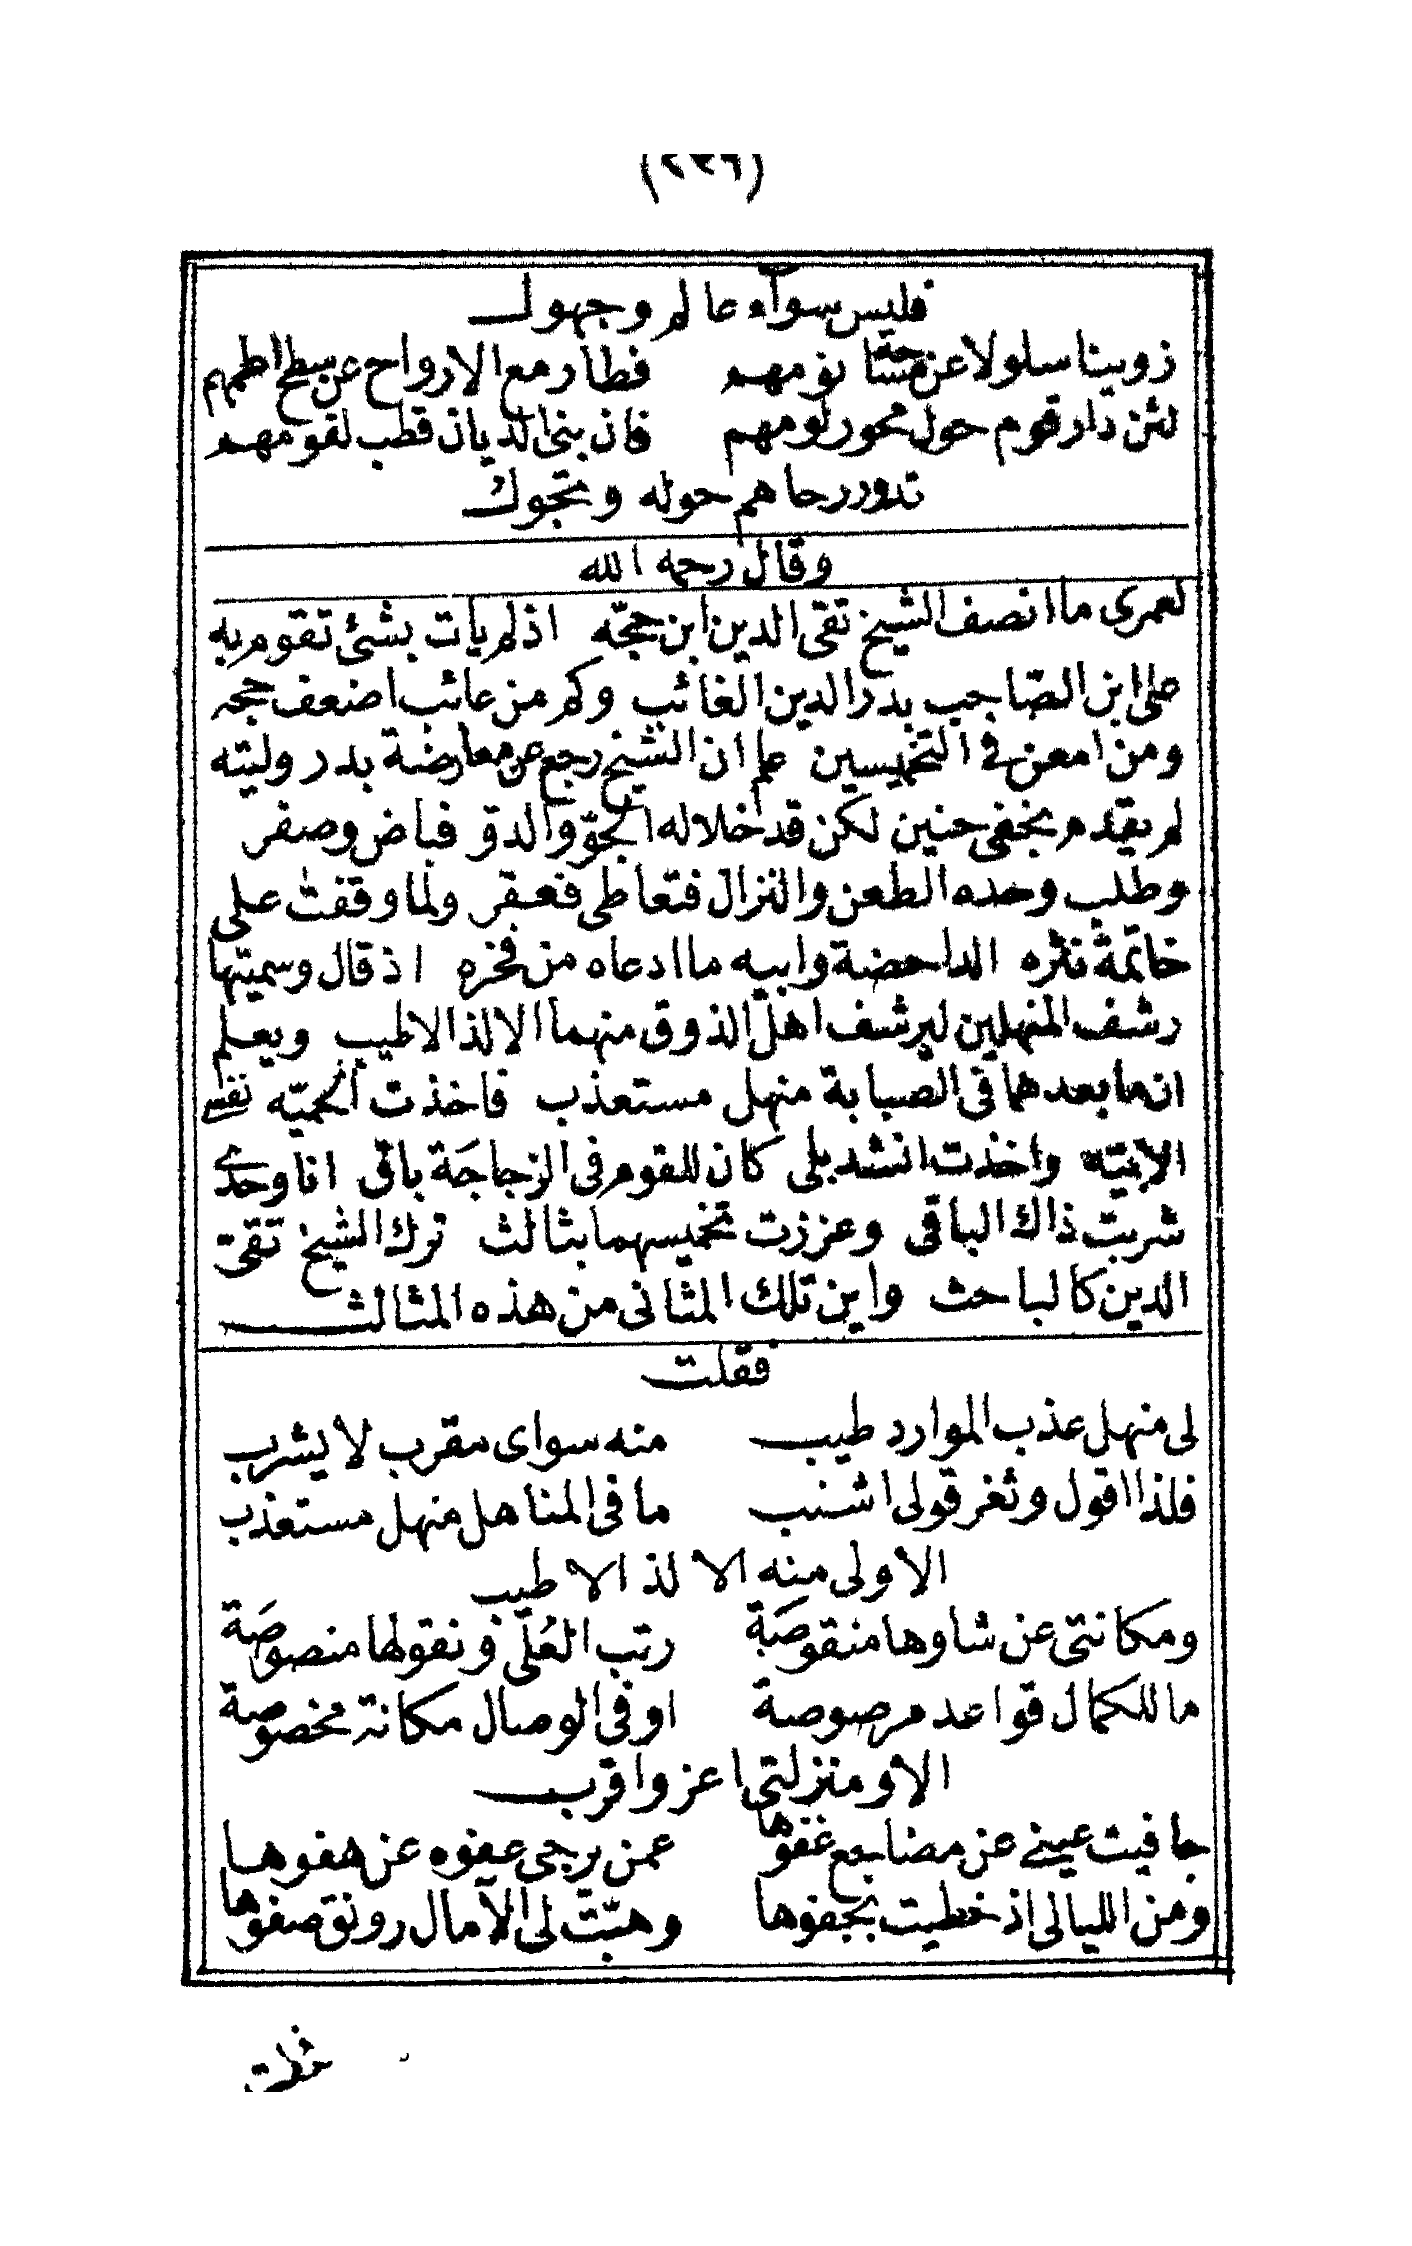 فليس سوآء عالم وجهول
زوبينا سلولا عن مساحة نومهم فطار مع الارواح عن سطح اطمهم
لئن دار قوم حول محور لومهم فان بنى الديان قطب لقومهم
تدور رحاهم حوله وتجول
وقال رحمه الله
لعمرى ما انصف الشيخ تقى الدين ابن حجّه اذ لم يات بشئ تقوم به
على ابن الصاحب بدر الدين الغائب وكم من عائب اضعف حجه
ومن امعن فى التخميسين علم ان الشيخ رجع عن معارضة بدر وليته
لم يقدم بخفى حنين لكن قد خلاله الجوّ والدو فباض وصفر
وطلب وحده الطعن والنزال فتعاطى فعقر ولما وقفت على
خاتمة نثره الداحضة وابيه ما ادعاه من فخره اذ قال وسميتها
رشف المنهلين ليرشف اهل الذوق منهما الالذ الاطيب ويعلم
ان ما بعدهما فى الصبابة منهل مستعذب فاخذت الحميّه نفس
الابيّه واخذت انشد بلى كان للقوم فى الزجاجة باقى انا وحدى
شربت ذاك الباقى وعززت تخميسهما بثالث ترك الشيخ تقىّ
الدين كالباحث واين تلك المثانى من هذه المثالث
فقلت
لى منهل عذب الموارد طيب منه سواى مقرب لا يشرب
فلذا اقول وثغر قولى اشنب ما فى المناهل منهل مستعذب
الا ولى منه الالذ الاطيب
ومكانتى عن شاوها منقوصة رتب العُلى ونقولها منصوصة
ما للكمال قواعد مرصوصة او فى الوصال مكانة مخصوصة
الا ومنزلتى اعز واقرب
جافيت عينى عن مضاجع غفوها عمن يرجى عفوه عن هفوها
ومن الليالى اذ خطيت بجفوها وهبّت لى الآمال رونق صفوها